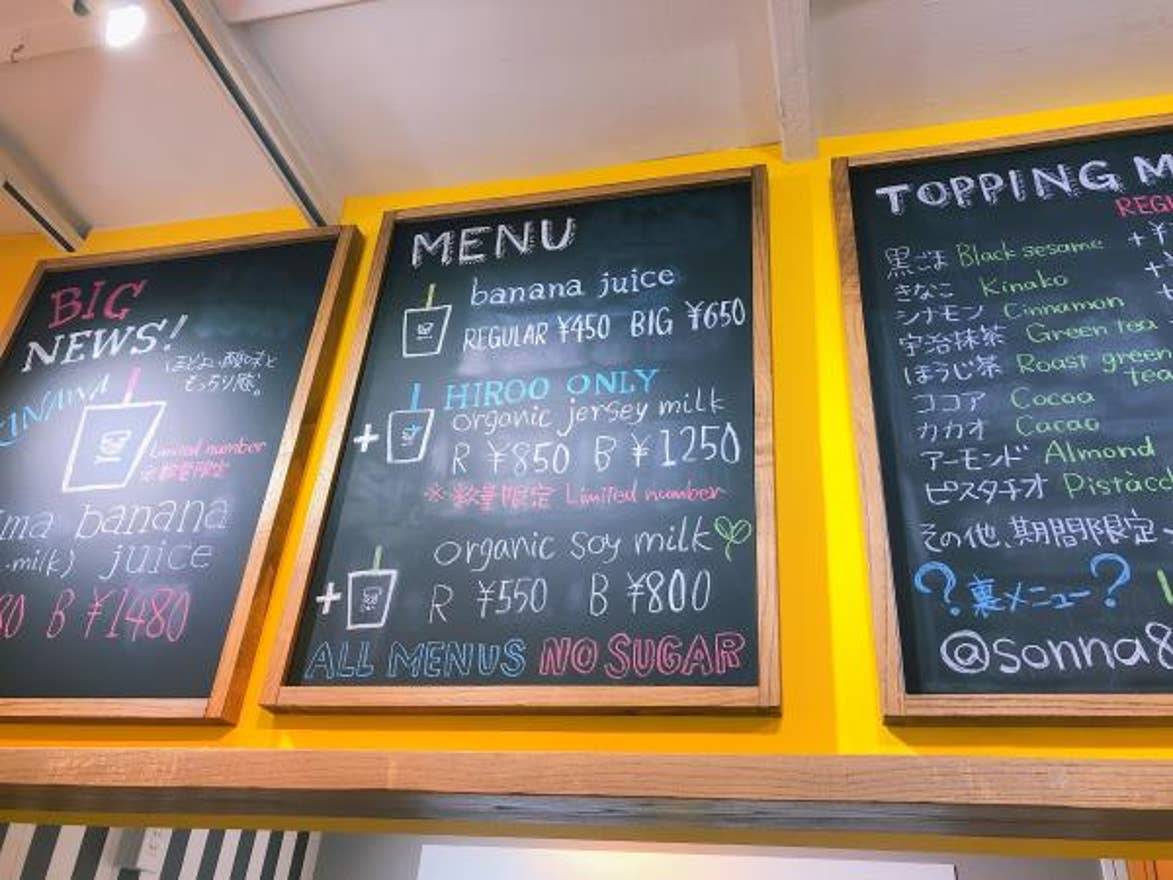 BIG
NEWS!
ほどよい酸味と
もっちり感。
Limited number
※数量限定
banana
milk) juice
80 B ¥1480
MENU
banana juice
REGULAR ¥450 BIG ¥650
HIROO ONLY
organic jersey milk
+ R ¥850 B ¥1250
※数量限定 Limited number
organic soy milk
+ R ¥550 B ¥800
ALL MENUS NO SUGAR
TOPPING M
REGU
黒ごま Black sesame +¥
きなこ Kinako +¥
シナモン Cinnamon
宇治抹茶 Green tea
ほうじ茶 Roast green tea
ココア Cocoa
カカオ Cacao
アーモンド Almond
ピスタチオ Pistac
その他、期間限定
?裏メニュー?
@sonna8